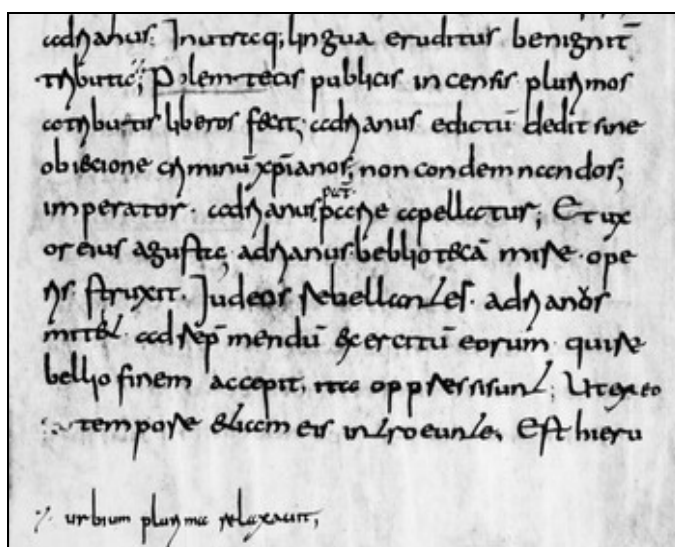 adrianus; In utraq; lingua eruditus benignit̄
tributa; publicis incensis plurimos
a tributis liberos fecit; adrianus edictū dedit sine
obiecione criminū xp̄ianos; non condemnandos;
imperator. adrianus pat̄ apellatus; Et ux
or eius agusta; adrianus bebliotecā mire ope
ris struxit. Iudeos rebellantes. adrianus
mitt& ad rep̄mendū exercitū eorum qui re
bellio finem accepit, ita oppressi sunt; Ut ex eo
tempore &liam eis introeunte, Est hieru
urbium plurima relaxavit;